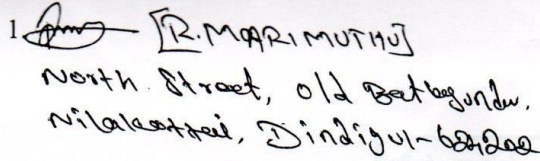 1. [R. MARIMUTHU]
North Street, old Batlagundu,
Nilakottai, Dindigul-624202